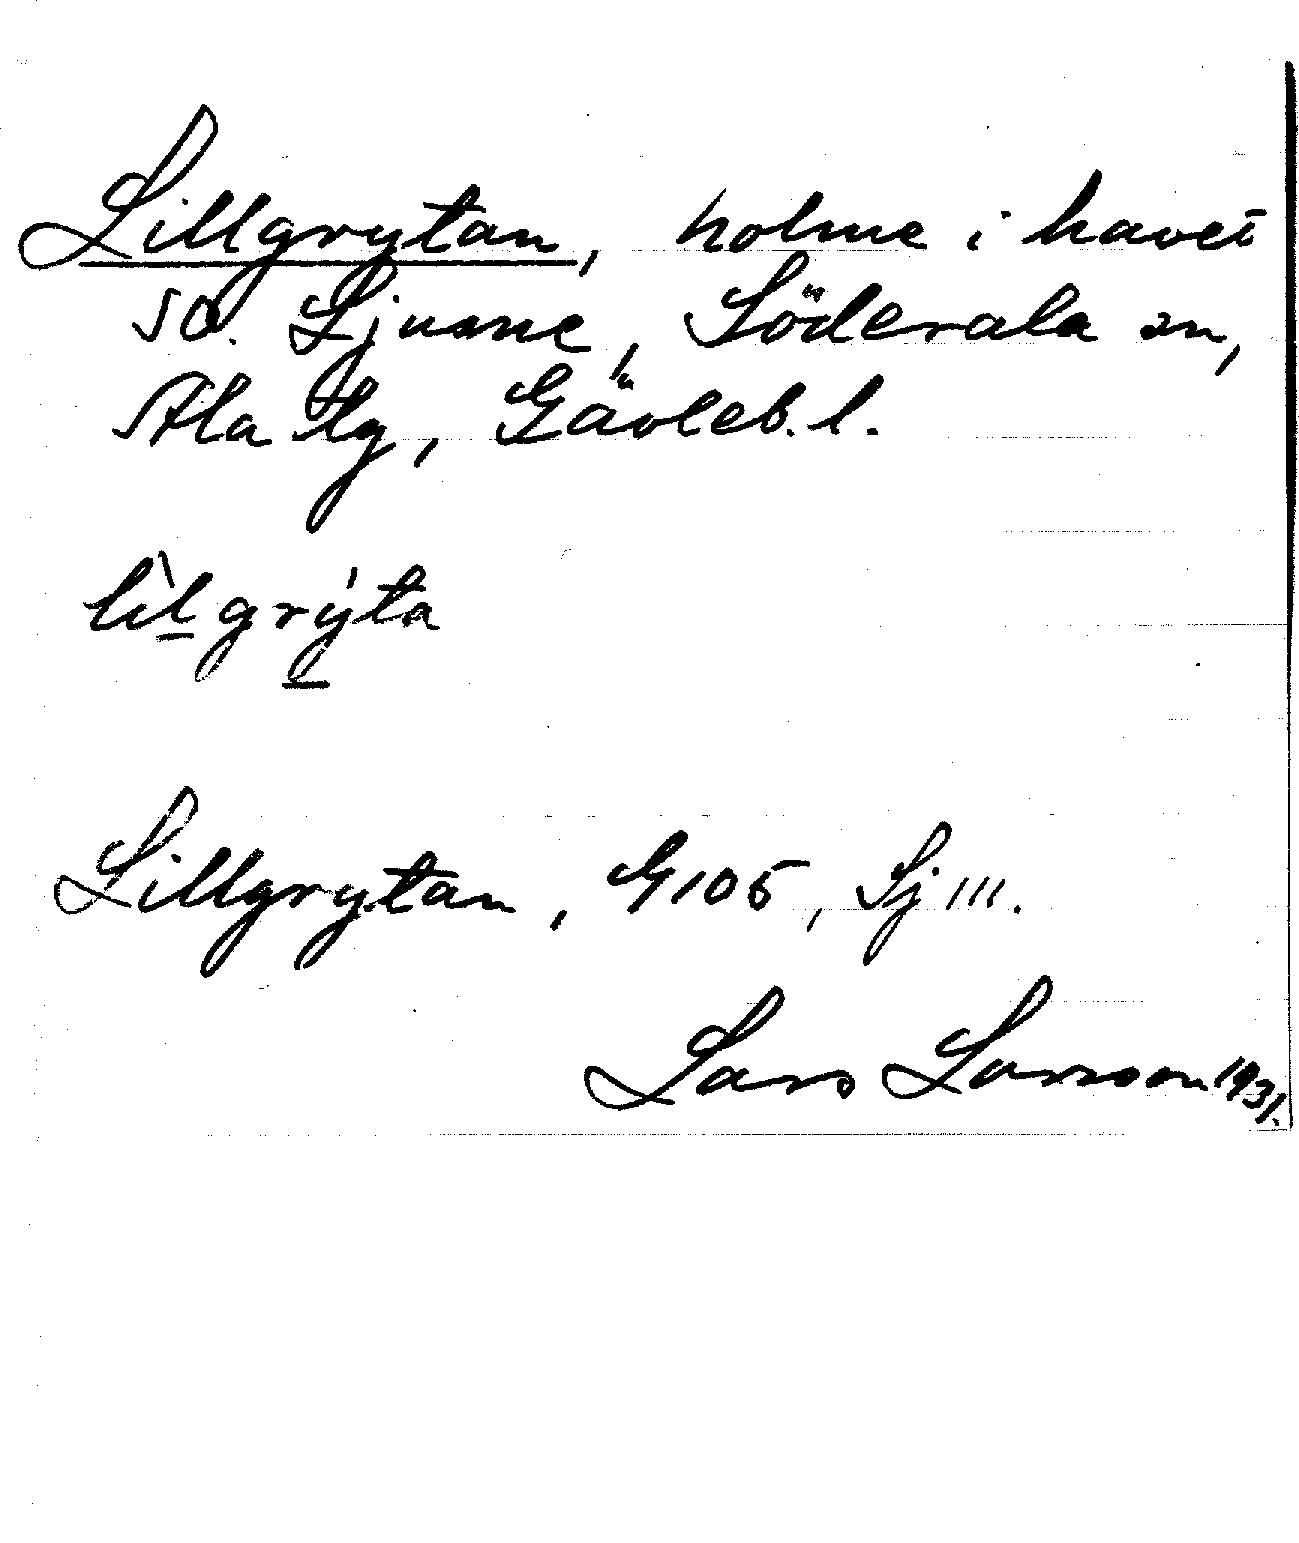 Lillgrytan, holme i havet
SO. Ljusne, Söderala sn,
Ala tg, Gävleb. l.
lìlgrýta
Lillgrytan, G105, Sj III.
Lars Larsson 1931.